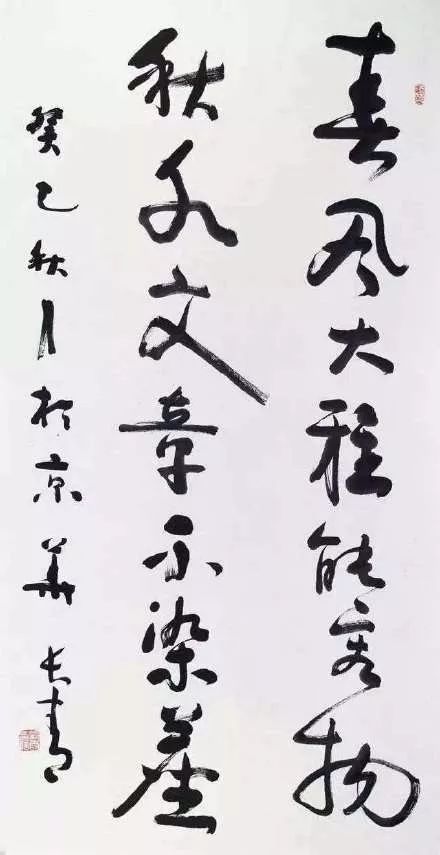 春風大雅能容物
秋水文章不染塵
癸巳秋月於京華长青